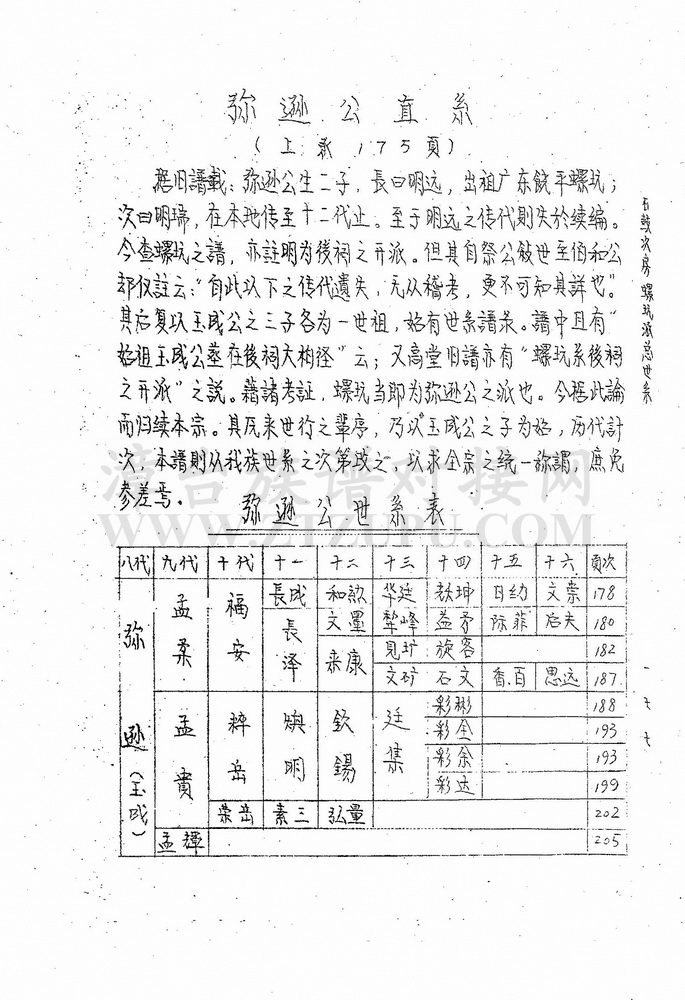 弥遜公直系
(上承175頁)
据旧譜載:弥遜公生二子,長曰明远,出祖广东饒平螺坑;
次曰明瑞,在本地传至十二代止。至于明远之传代則失於续编。
今查螺坑之譜,亦註明为後祠之开派。但其自祭公敘世至伯和公
却仅註云:"自此以下之传代遺失,无从稽考,更不可知其詳也"。
其后复以玉成公之三子各为一世祖,始有世系譜录。譜中且有"
始祖玉成公墓在後祠大相径"云;又高堂旧譜亦有"螺坑系後祠
之开派"之說。藉諸考証,螺坑当即为弥遜公之派也。今据此論
而归续本宗。其反来世行之輩序,乃以玉成公之子为始,历代計
次,本譜則从我族世系之次第改之,以求全宗之统一称謂,庶免
参差焉。
弥遜公世系表
八代 九代 十代 十一 十二 十三 十四 十五 十六 頁次
弥遜(玉成) 孟柔 福安 長成 和歆 华廷 敖坤 日幼 文崇 178
長泽 文墨 犂峰 益矛 际菲 启夫 180
来康 見圹 旋客 182
文矿 石文 香百 思远 187
孟賁 粹岳 煥明 欽錫 廷集 彩彬 188
彩全 193
彩余 193
彩达 199
荣岳 素三 弘量 202
孟輝 205
次房 螺坑派总世系
一七七
漳台族谱对接网
WWW.ZTZUPU.COM